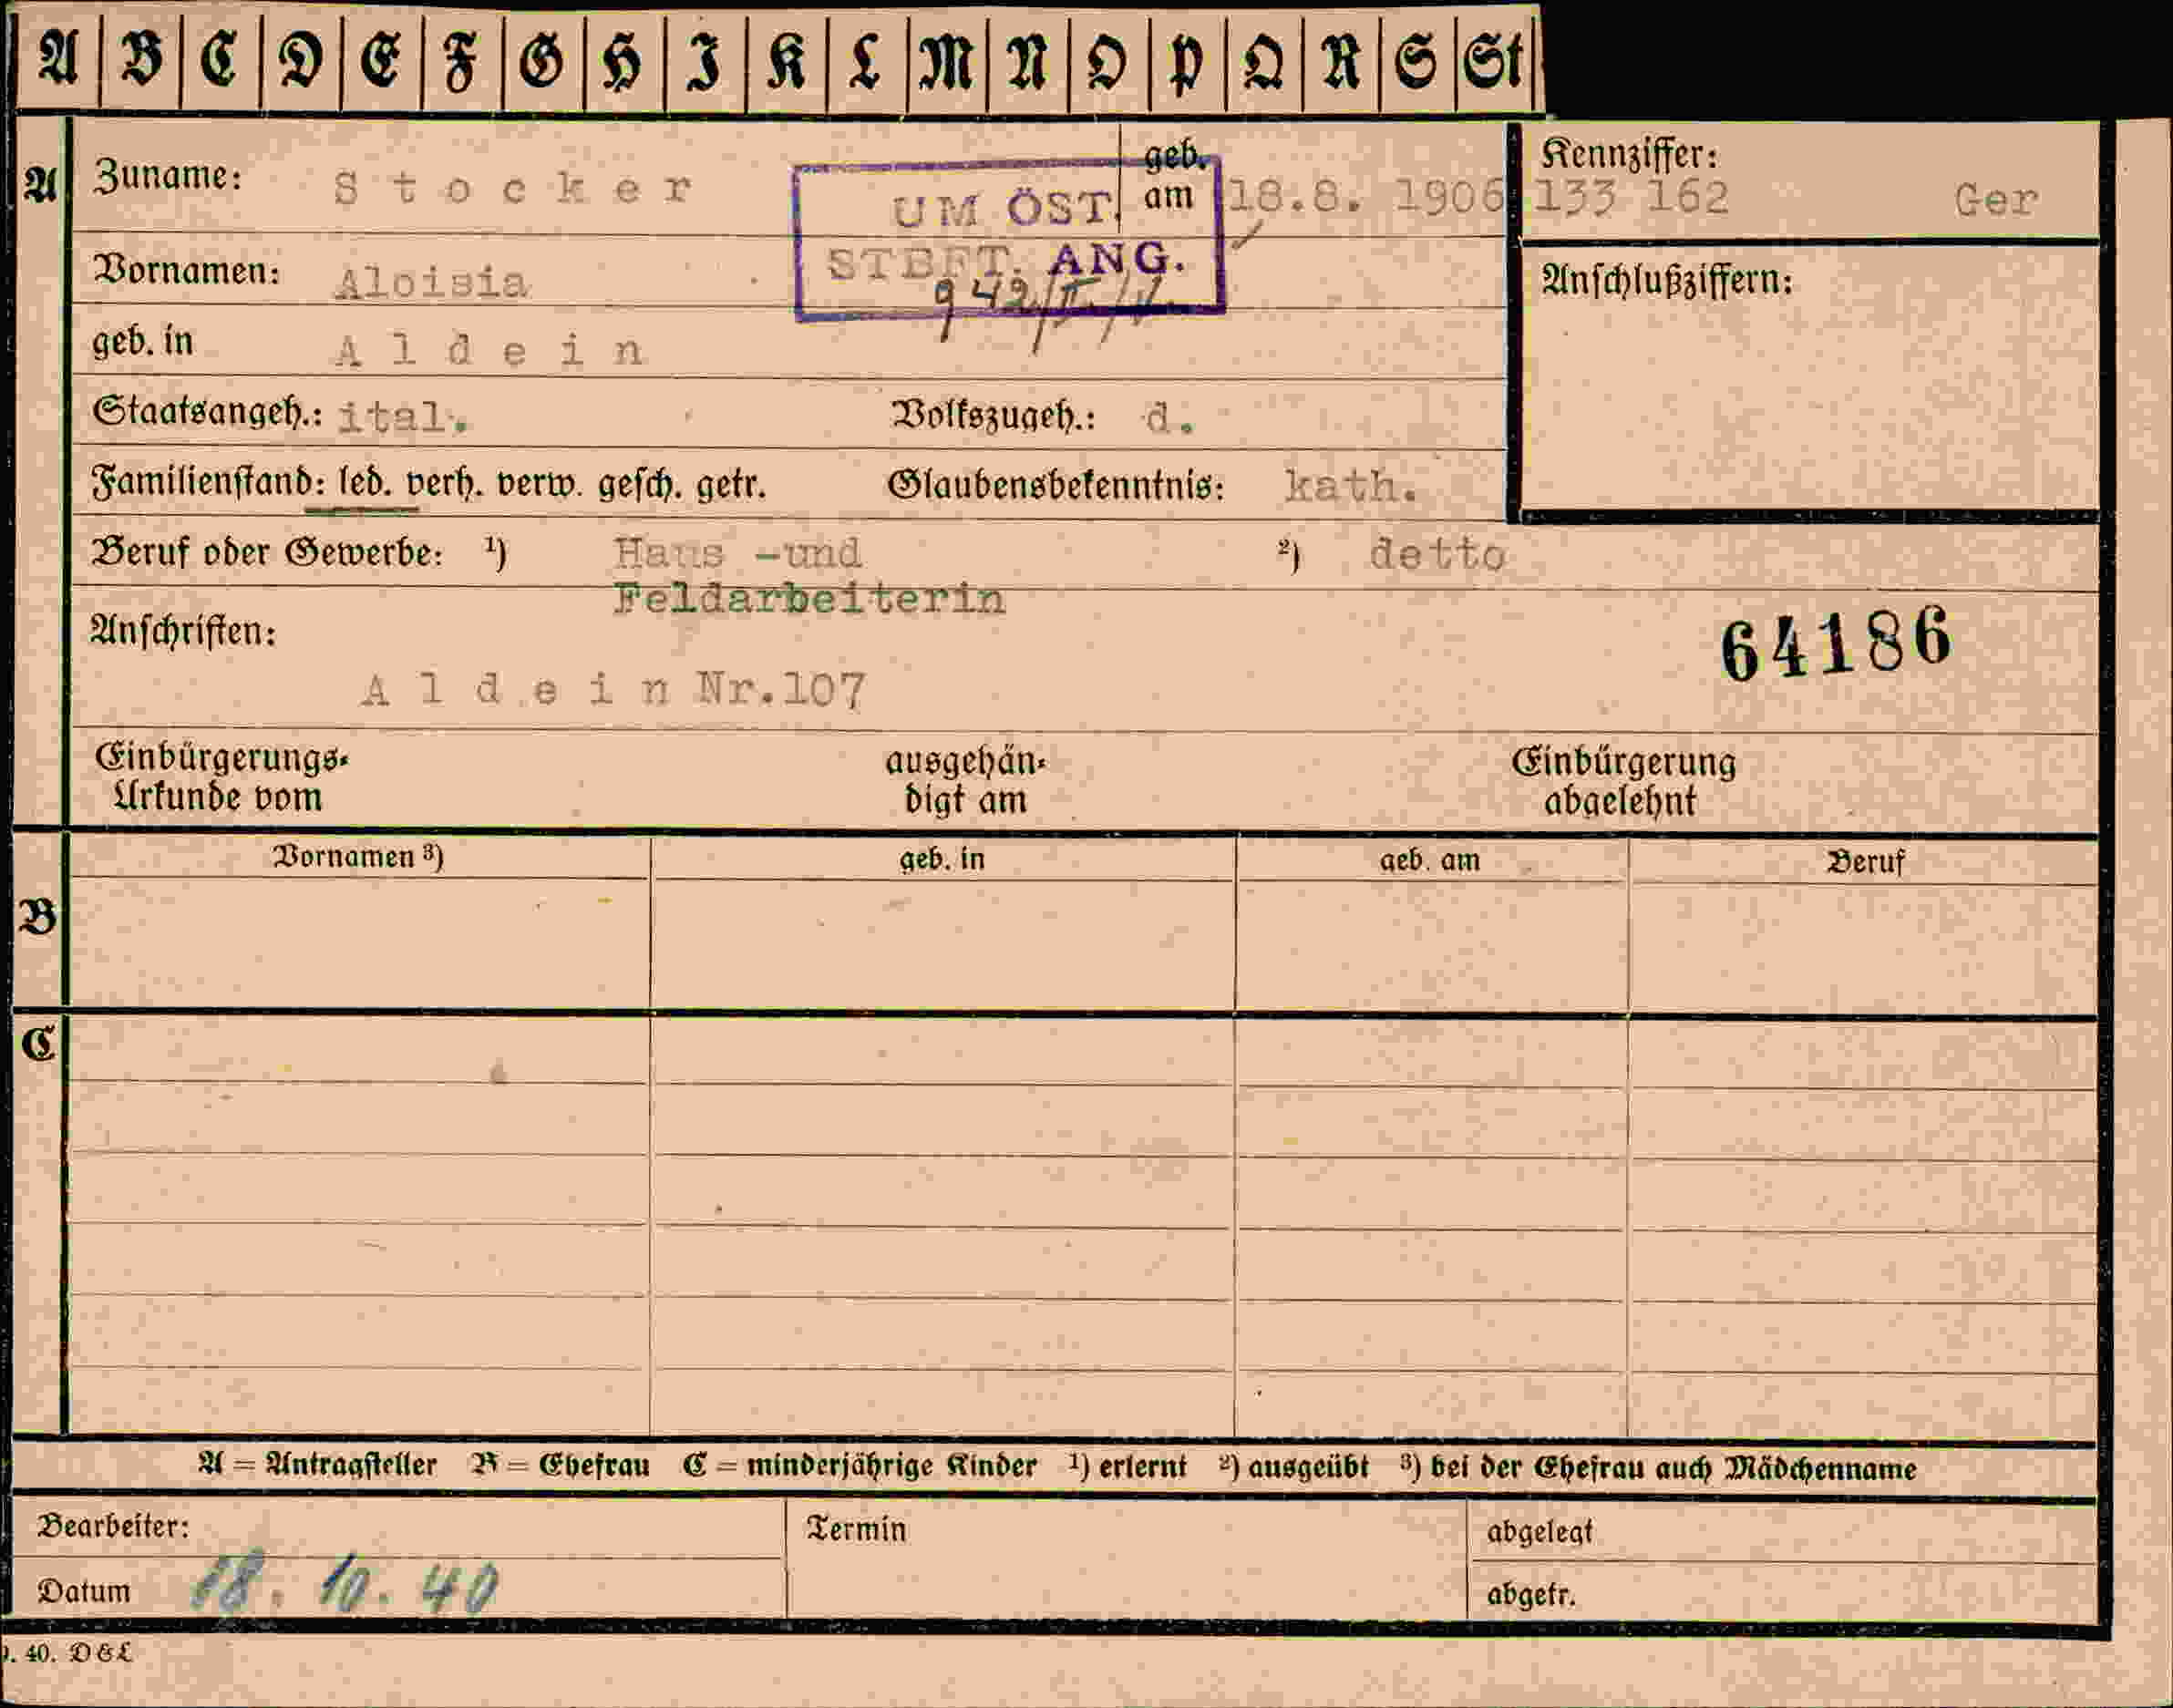 A B C D E F G H I K L M N O P Q R S St
A Zuname: Stocker geb. am 18.8. 1906
Kennziffer:
133 162 Ger
UM ÖST.
STBFT. ANG.
Vornamen: Aloisia
Anschlußziffern:
geb. in Aldein
Staatsangeh.: ital. Volkszugeh.: d.
Familienstand: led. verh. verw. gesch. getr. Glaubensbekenntnis: kath.
Beruf oder Gewerbe: ¹) Haus -und ²) detto
Feldarbeiterin
Anschriften:
64186
Aldein Nr.107
Einbürgerungs-
Urkunde vom
ausgehän-
digt am
Einbürgerung
abgelehnt
B
Vornamen ³) geb. in geb. am Beruf
C
A = Antragsteller B = Ehefrau C = minderjährige Kinder ¹) erlernt ²) ausgeübt ³) bei der Ehefrau auch Mädchenname
Bearbeiter: Termin abgelegt
Datum 18. 10. 40 abgetr.
40. D & L